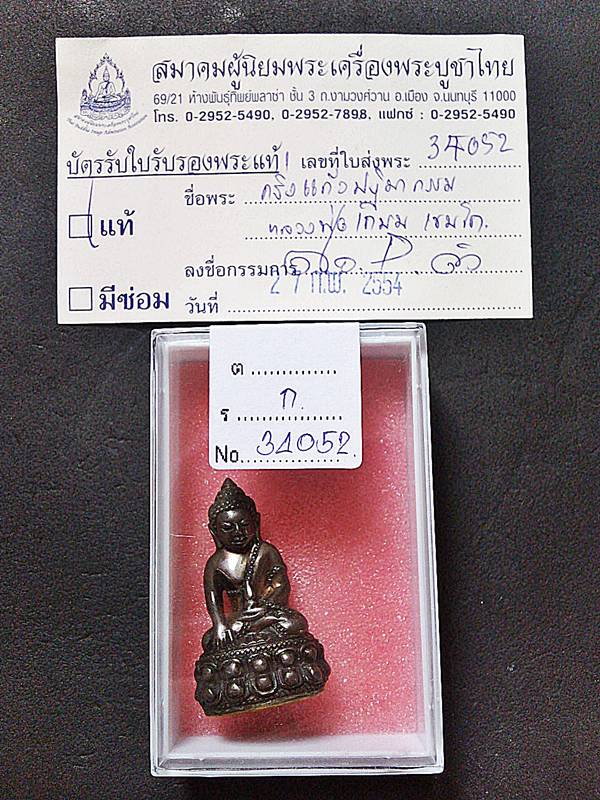 สมาคมผู้นิยมพระเครื่องพระบูชาไทย
69/21 ห้างพันธุ์ทิพย์พลาซ่า ชั้น 3 ถ.งามวงศ์วาน อ.เมือง จ.นนทบุรี 11000
โทร. 0-2952-5490, 0-2952-7898, แฟกซ์ : 0-2952-5490
บัตรรับใบรับรองพระแท้ เลขที่ใบส่งพระ 34052
ชื่อพระ กริ่ง
แท้ หลวงพ่อเกษม เขมโก.
ลงชื่อกรรมการ
27 ก.พ. 2554
มีซ่อม วันที่
ต
ร ก.
No. 34052.